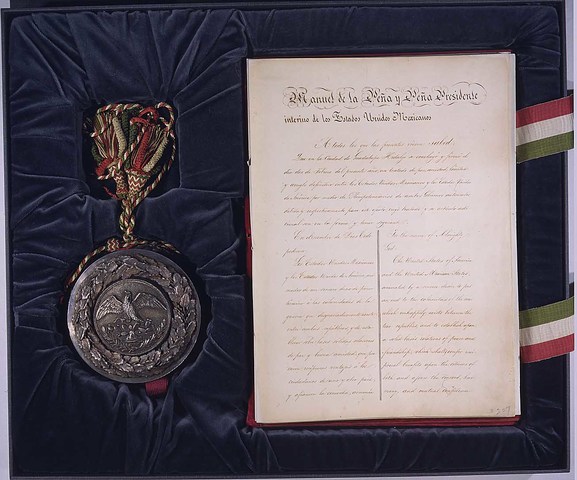 Manuel de la Peña y Peña Presidente
interino de los Estados Unidos Mexicanos
A todos los que las presentes vieren sabed
Que en la Ciudad de Guadalupe Hidalgo se concluyó y firmó el
dia dos de Febrero del presente año un tratado de paz, amistad, limites
y arreglo definitivo entre los Estados Unidos Mexicanos y los Estados Unidos
de America por medio de Plenipotenciarios de ambos Gobiernos autorizados
debida y respectivamente para este efecto, cuyo tratado y su articulo adicio-
nal son en la forma y tenor siguiente.
En el nombre de Dios Todo
poderoso.
Los Estados Unidos Mexicanos
y los Estados Unidos de America, ani-
mados de un sincero deseo de poner
termino a las calamidades de la
guerra que desgraciadamente existe
entre ambas republicas, y de estable-
cer sobre bases solidas relaciones
de paz y buena amistad, que pro-
curen reciprocas ventajas a los
ciudadanos de uno y otro pais,
y afiancen la concordia, armonia
In the name of Almighty
God.
The United States of America
and the United Mexican States,
animated by a sincere desire to
put an end to the calamities of the war
which unhappily exists between the
two republics, and to establish upon
a solid basis relations of peace and
friendship, which shall confer reci-
procal benefits upon the citizens of
both, and assure the concord, har-
mony and mutual confidence